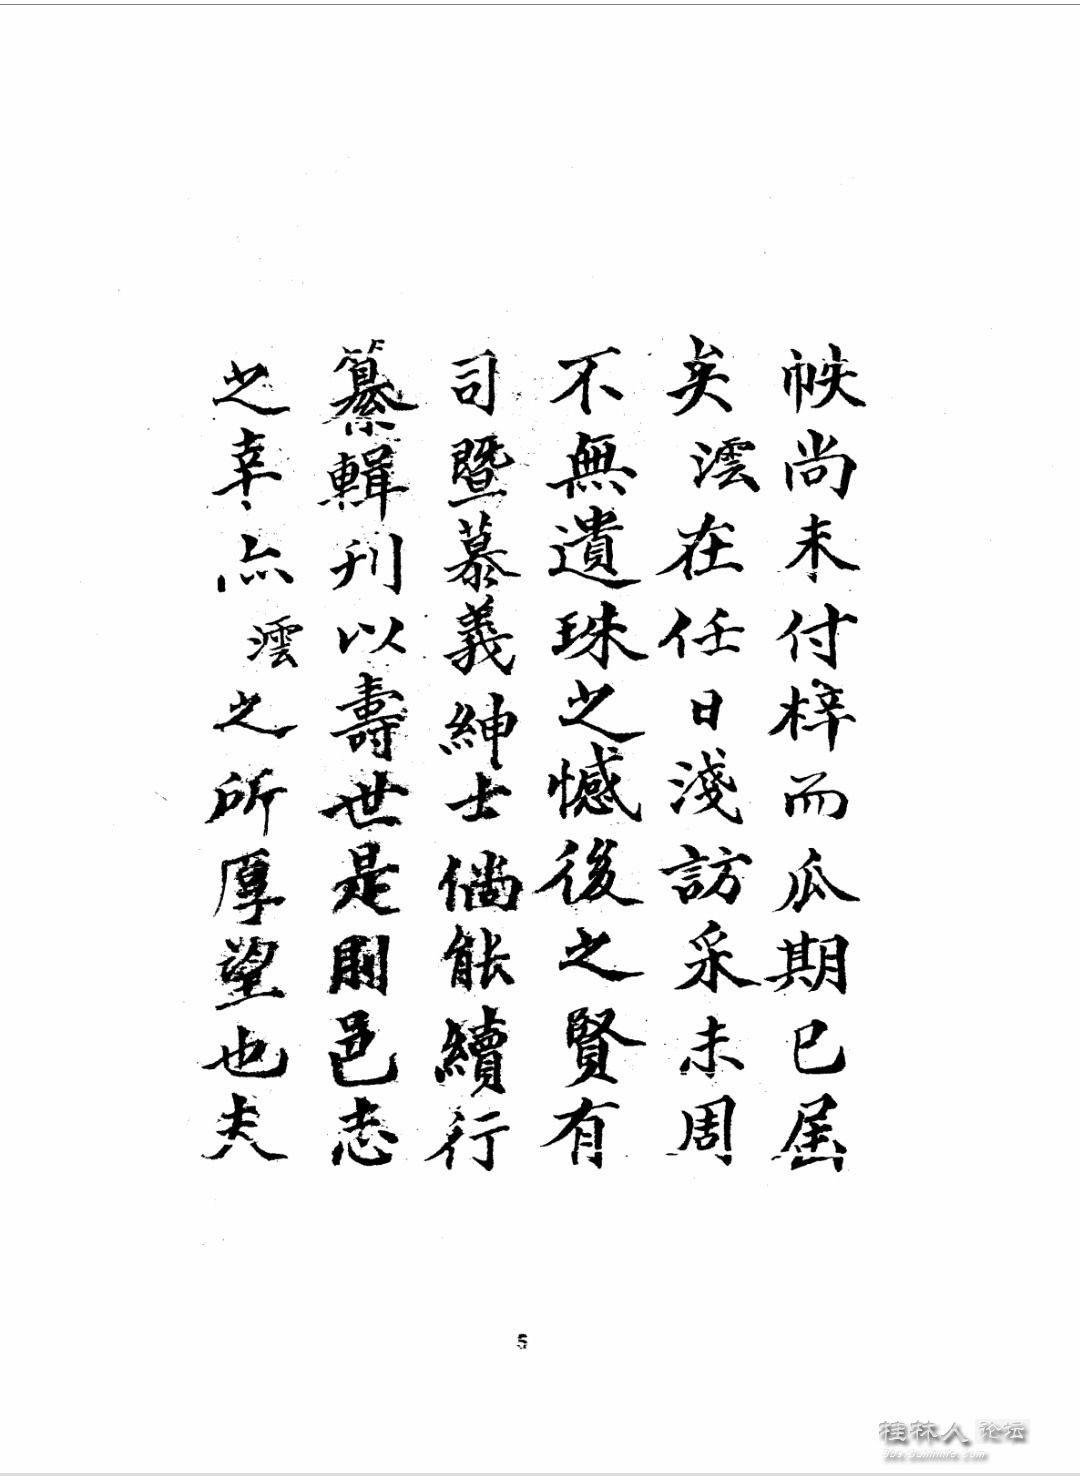 帙尚未付梓而瓜期已屆
矣澐在任日淺訪采未周
不無遺珠之憾後之賢有
司暨慕義紳士倘能續行
纂輯刊以壽世是則邑志
之幸亦澐之所厚望也夫
5
桂林人论坛